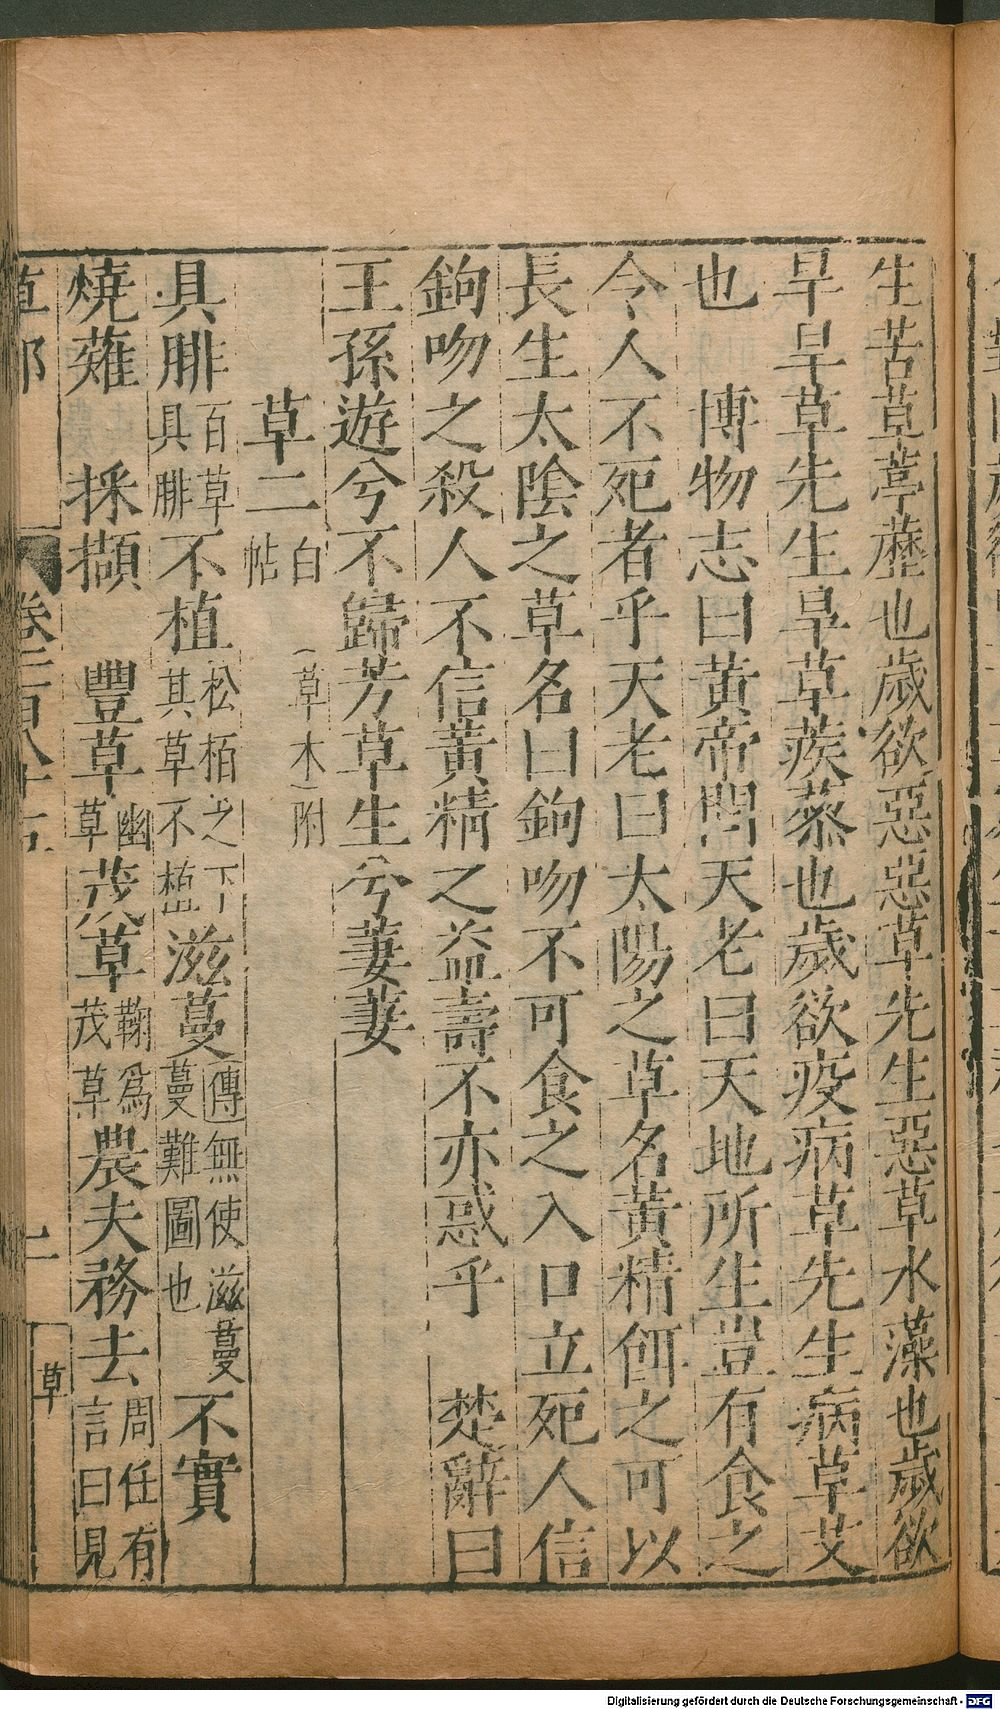 生苦草葶藶也歲欲惡惡草先生惡草水藻也歲欲
旱旱草先生旱草蒺蔾也歲欲疫病草先生病草艾
也　博物志曰黃帝問天老曰天地所生豈有食之
令人不死者乎天老曰太陽之草名黃精餌之可以
長生太陰之草名曰鉤吻不可食之入口立死人信
鉤吻之殺人不信黃精之益壽不亦惑乎　楚辭曰
王孫遊兮不歸芳草生兮萋萋
草二　白帖（草木）附
具腓百草具腓不植松栢之下其草不植滋蔓傳無使滋蔓蔓難圖也不實
燒薙　採擷　豐草幽草茂草鞠爲茂草農夫務去周任有言曰見
草部　卷三百八十五　草
Digitalisierung gefördert durch die Deutsche Forschungsgemeinschaft - DFG